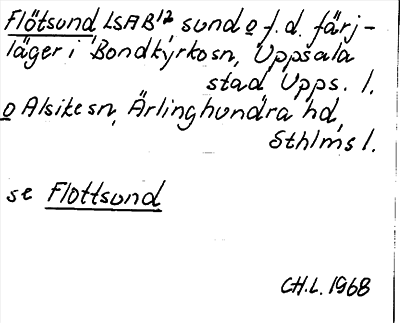 Flötsund LSAB¹² sund o f.d. färj-
läger i Bondkyrkosn, Uppsala
stad Upps. l.
o Alsikesn, Ärlinghundra hd,
Sthlms l.
se Flottsund
CH.L. 1968